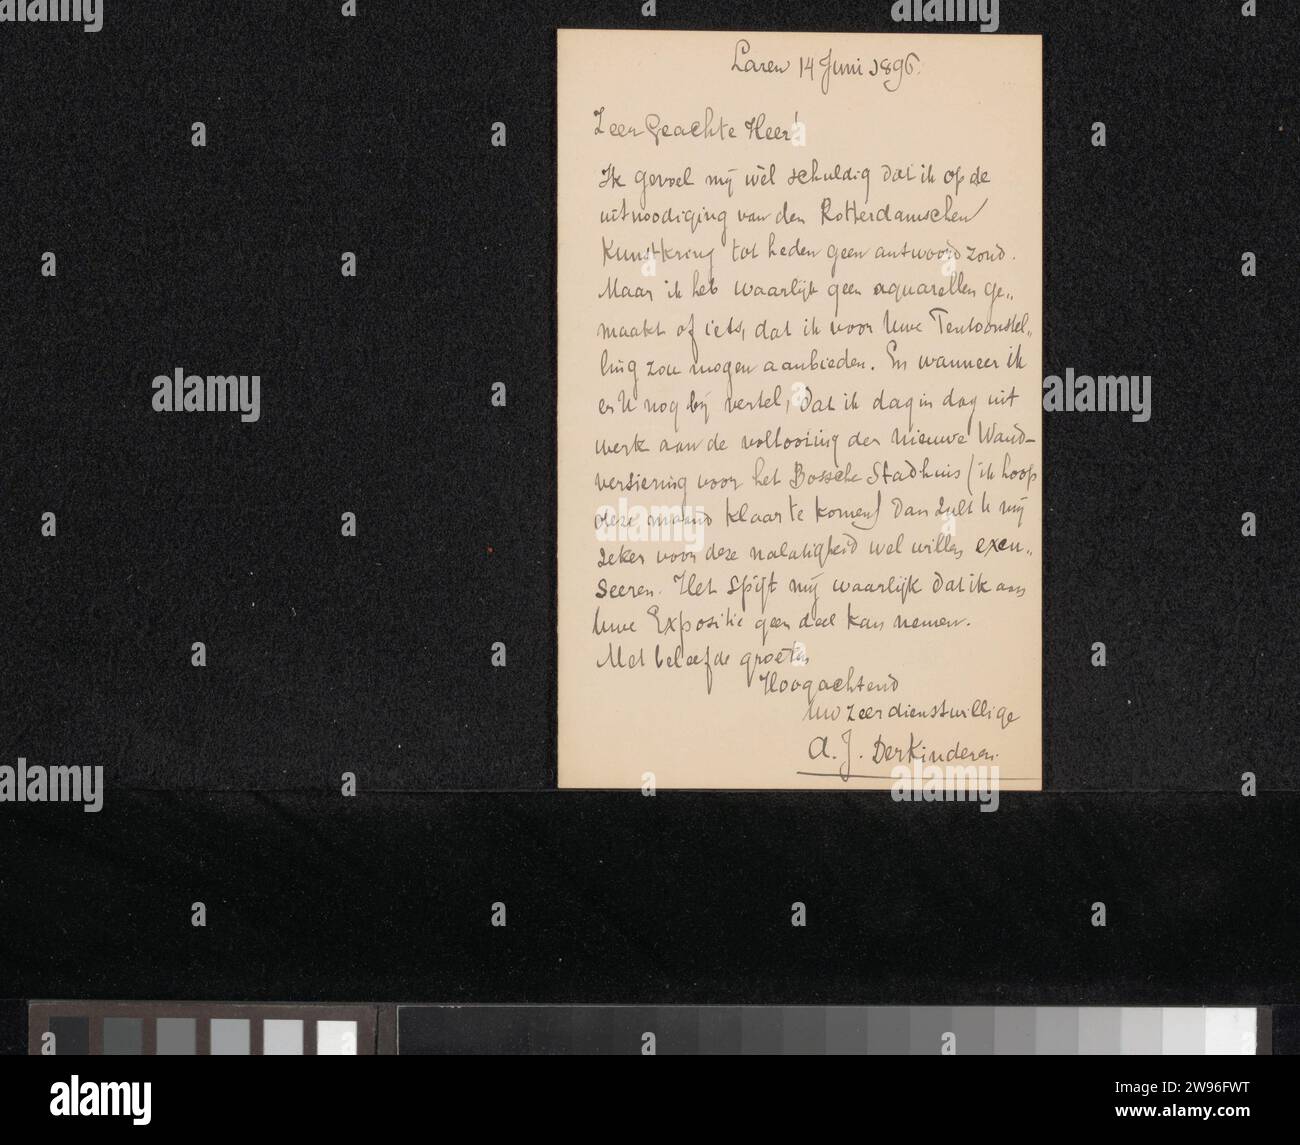 Laren 14 Juni 1896.
Zeer Geachte Heer!
Ik gevoel mij wèl schuldig dat ik op de
uitnoodiging van den Rotterdamschen
Kunstkring tot heden geen antwoord zond.
Maar ik heb waarlijk geen aquarellen ge„
maakt of iets, dat ik voor Uwe Tentoonstel„
ling zou mogen aanbieden. En wanneer ik
er U nog bij vertel, dat ik dag in dag uit
werk aan de voltooiing der nieuwe Wand-
versiering voor het Bossche Stadhuis (ik hoop
deze maand klaar te komen) dan zult U mij
zeker voor deze nalatigheid wel willen excu„
seeren. Het spijt mij waarlijk dat ik aan
Uwe Expositie geen deel kan nemen.
Met beleefde groeten
Hoogachtend
Uw zeer dienstwillige
A. J. Derkinderen.
alamy
Image ID: 2W96FWT
www.alamy.com